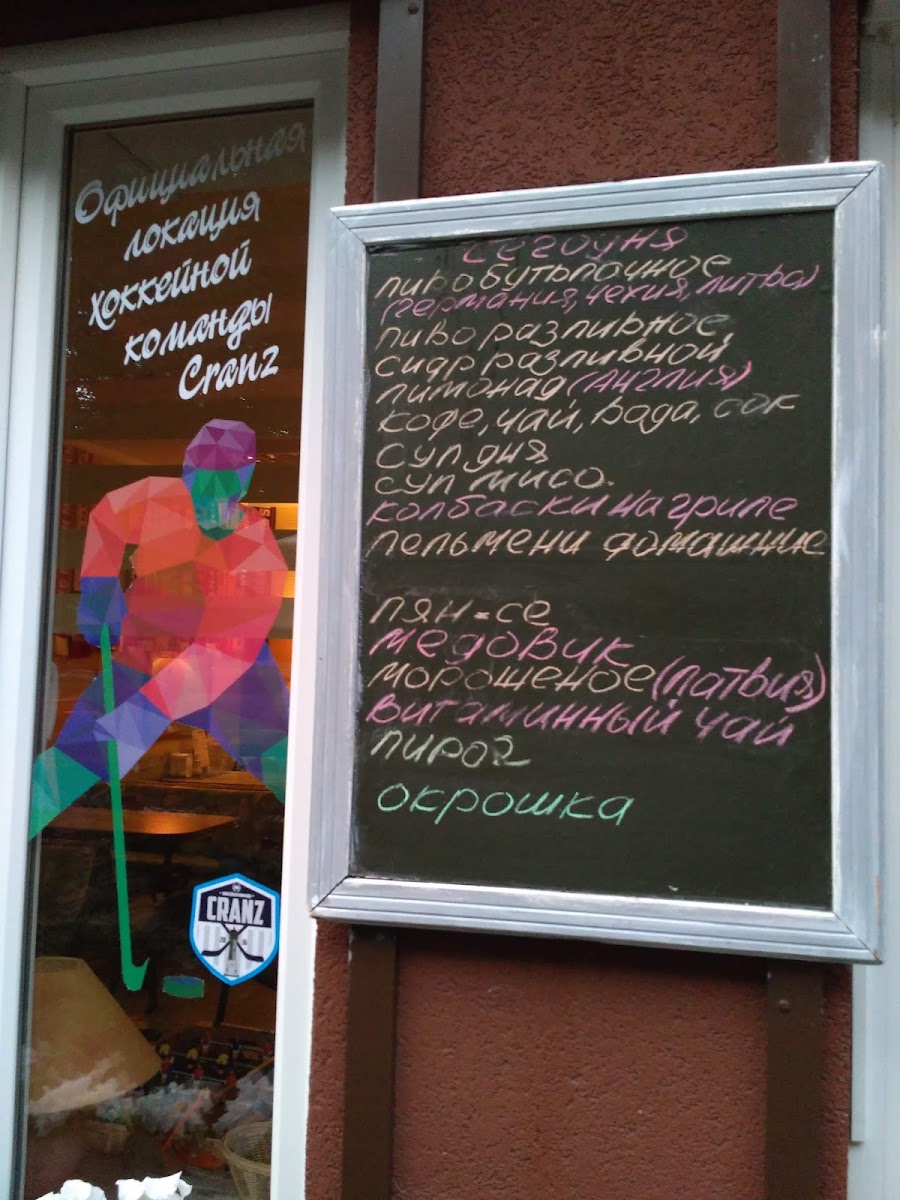 Официальная
локация
хоккейной
команды
Cranz
CRANZ
сегодня
пиво бутылочное
(германия, чехия, литва)
пиво разливное,
сидр разливной
лимонад (Англия)
кофе, чай, вода, сок
суп дня
суп мисо.
колбаски на гриле
пельмени домашние
пян-се
медовик
морошеное (латвия)
витаминный чай
пирог
окрошка